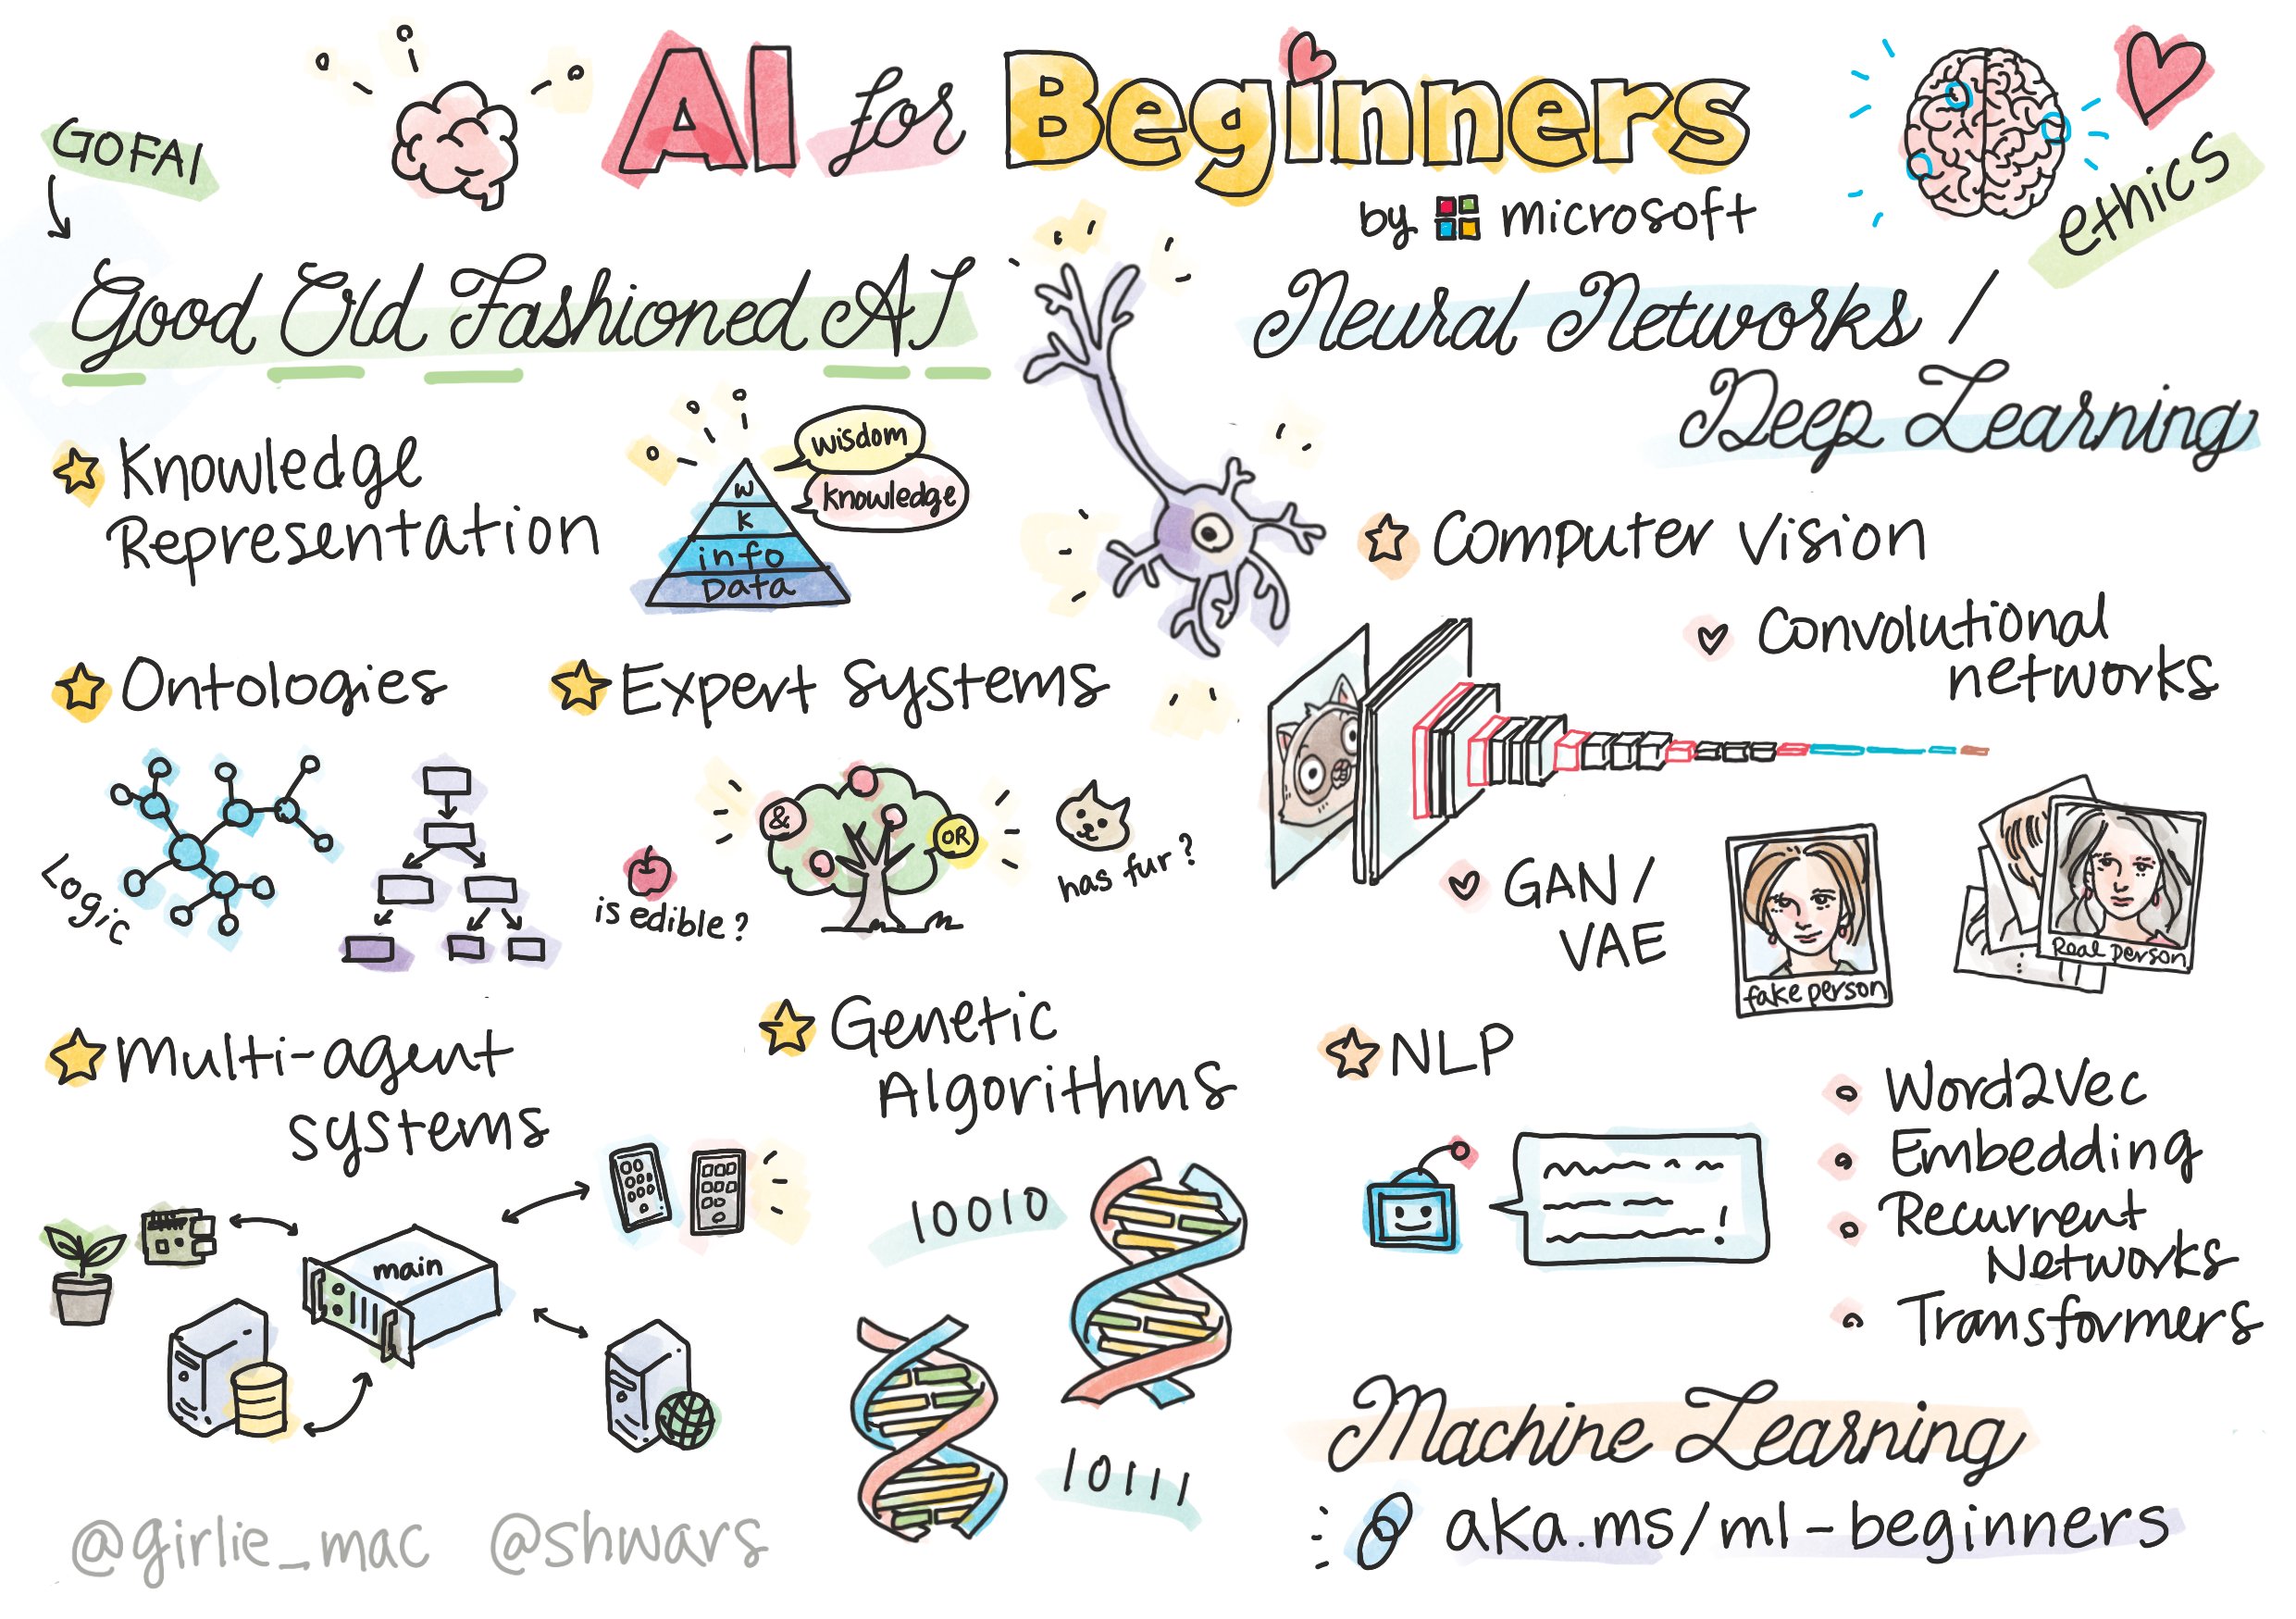 AI for Beginners
by microsoft
GOFAI
Good Old Fashioned AI
Knowledge
Representation
wisdom
knowledge
W
K
info
Data
Ontologies
Logic
Expert systems
&
OR
is edible?
has fur?
Multi-agent
systems
main
Genetic
Algorithms
10010
10111
@girlie_mac @shwars
ethics
Neural Networks /
Deep Learning
Computer Vision
Convolutional
networks
GAN /
VAE
fake person
Real person
NLP
Word2Vec
Embedding
Recurrent
Networks
Transformers
!
Machine Learning
aka.ms/ml-beginners